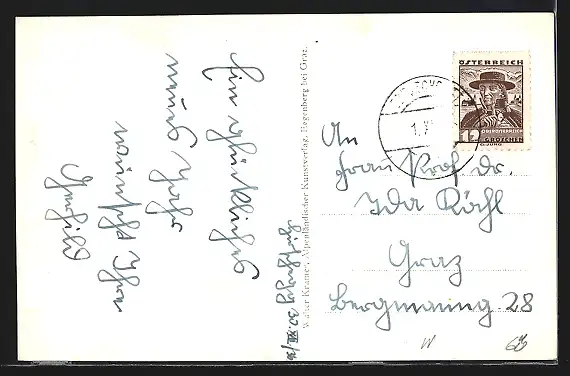 Ein glückliches
neues Jahr
wünscht Ihre
Walter Kramer, Alpenländischer Kunstverlag, Hegenberg bei Graz.
ÖSTERREICH
12
OBERÖSTERREICH
GROSCHEN
An
Frau Prof. Dr.
Ida Röhl
Graz
Bergmanng. 28